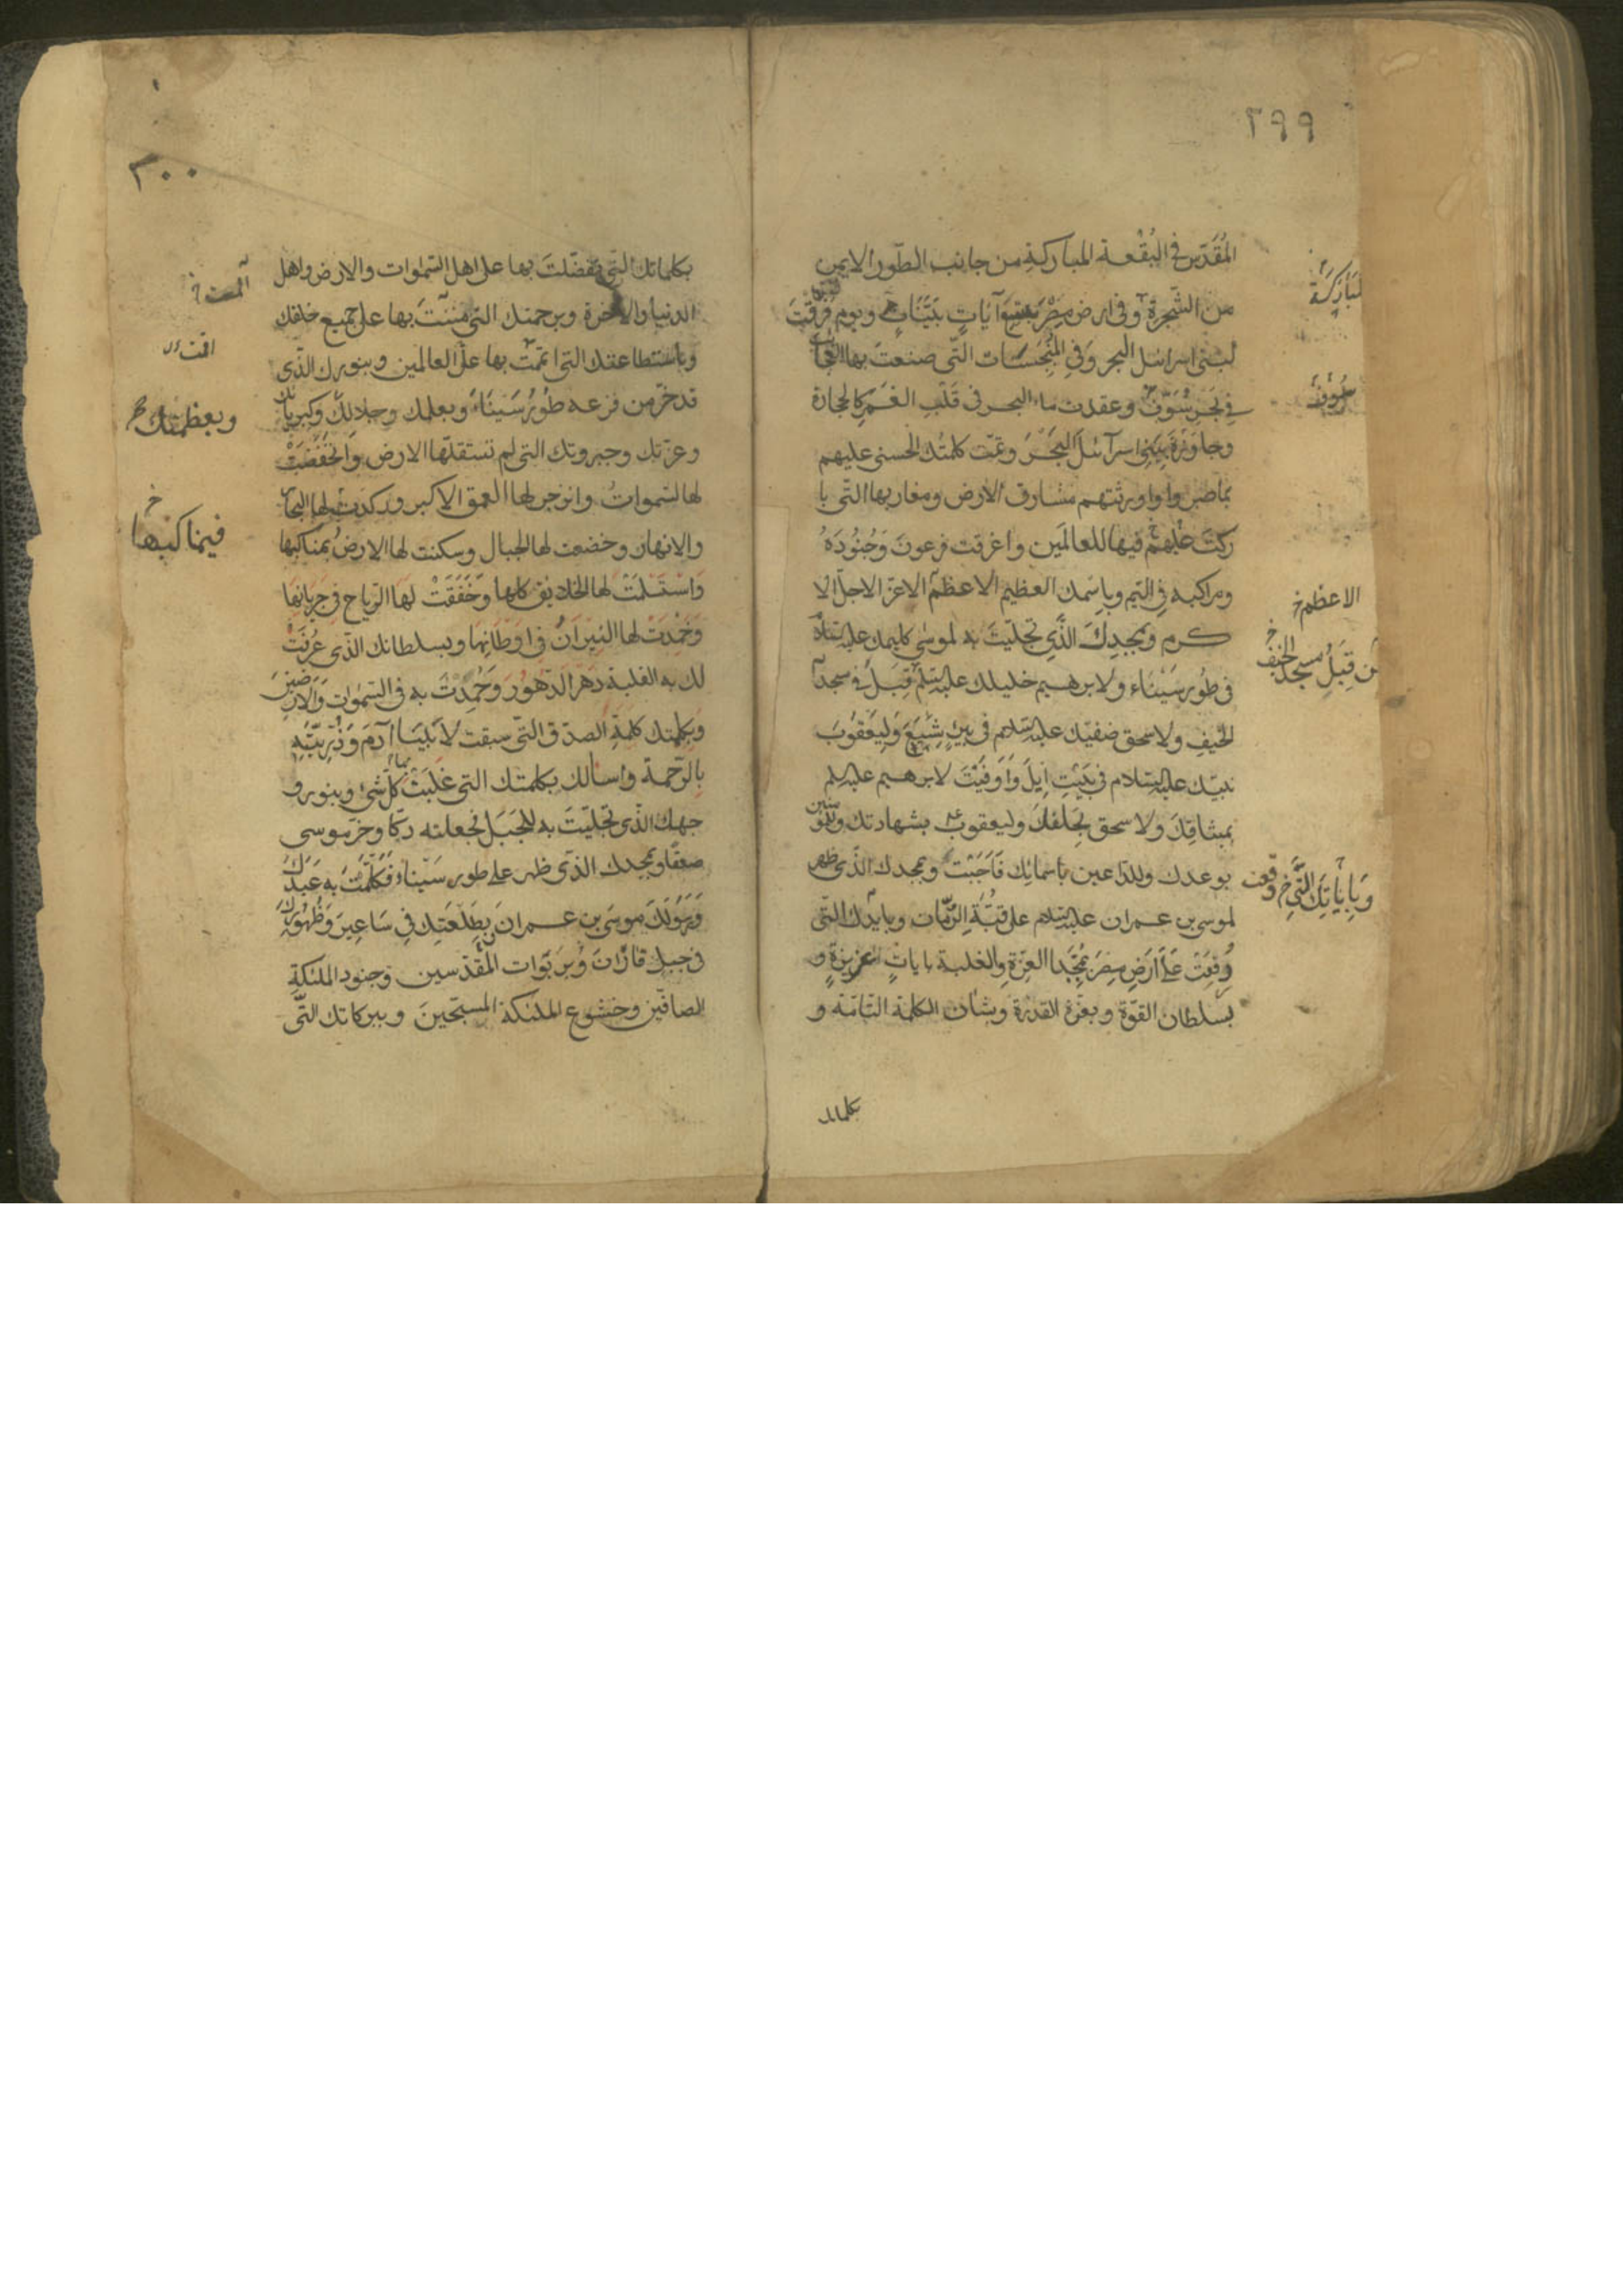 ٢٩٩
المُقَدَّسِ فِي البُقْعَةِ المباركةِ من جانب الطّور الايمن
من الشَّجرةِ وفي ارض مِصْرَ بتسعِ آيَاتٍ بَيِّنَاتٍ ويوم فَرَقْتَ
لبنى اسرائيل البحر وَفي المُنْبَجِسَات التّى صنعتَ بها العجا
ئب
في بَحْرِ سُوفٍ وعقدت ماء البحر فى قَلْبِ الغَمْرِ كالحجارة
وجاوَزْتَ بِبَنِى اسرآئيلَ البَحْرَ وتمّت كلمتُك الحسنى عليهم
بما صبروا واورثتهم مشارق الارض ومغاربها التّى با
ركتَ عليهم فيها للعالمَين واغرقت فرعونَ وَجُنُودَهُ
ومراكبه فِي اليَمِ وباسمك العظيم الاعظم الاعزّ الاجلّ الا
كرم وبمجدِكَ الَّذِي تجلّيتَ به لموسٰى كليمك عليه السّلام
في طُورِ سَيْنَاء ولابرهيم خليلك عليه السّلم قَبْلُ فى مسجد
الخَيفِ ولاسحق صفيّك عليه السّلام في بِئرِ شِيَعٍ وَلِيَعْقُوبَ
نبيّك عليه السّلام في بَيْتِ اِيلَ وَاَوفَيْتَ لابرهيم عليه السلم
بميثاقِكَ ولاسحق بِحَلفِكَ وليعقوب بشهادتك وللمؤ
منين
بوعدك وللدّاعين باسمائِك فَاَجَبْتَ وبمجدك الّذى ظهر
لموسى بن عمران عليه السّلم على قُبَّةِ الرُّمّان وبايدك التّى
وُقِعَتْ عَلٰى اَرضِ مِصْرَ بِمَجْدِ العِزّةِ والغلبة بايات عزيزةٍ و
بسلطان القوّة وبعزّة القدرة وبشأن الكلمة التّامّة و
بكلماتك
مُبَارَكَة
الاعظم خ
مِن قَبلُ مسجد الخيف خ
وَبِاٰيَاتِكَ الَّتِي وقعت خ
٣٠٠
بكلماتك التى تفضّلتَ بها على اهل السّمٰوات والارض واهل
الدنيا والاخرة وبرحمتك التى مننتَ بها على جميع خلقك
وباستطاعتك التى اقمتَ بها على العالمين وبنورك الذّى
قد خرّ من فزعه طُورُ سَيْنَاءَ وبعلمك وجلالِكَ وكبريا
ئك
وعزّتك وجبروتك التى لم تستقلّها الارض وَانخَفَضَتْ
لها السّموَاتُ وانزجر لها العمق الاكبر وركدت لها البحار
والانهار وخضعت لها الجبال وسكنت لها الارضُ بمَنَاكبِها
وَاسْتَسْلَمَتْ لها الخلايق كلها وَخَفَقَتْ لَهَا الرّياح فى جَرَيَانِهَا
وَخَمَدَتْ لها النّيرَانُ فى اَوْطَانِهَا وبسلطانك الّذى عُرِفَتْ
لك به الغلبة دَهْرَ الدّهُورِ وَحُمِدْتَ به فى السّمٰوَات وَالاَرَ
ضِينَ
وَبكلمتك كلمةِ الصدّق الّتى سبقت لاَبينَا آدَمَ وَذُرِّيَّتِهِ
بِالرَّحمة واسالك بكلمتك التى غَلَبَتْ كلّ شىء وبنور و
جهك الذّى تجلّيتَ به للجَبَلِ فجعلته دكّا وخرّ موسى
صعقًا وبمجدك الذّى ظهر على طور سَيْنَاء فَكَلّمْتَ به عَبْدَكَ
وَرَسُولَكَ موسَى بن عمران وَبِطَلْعَتِك فِي سَاعِيرَ وَظُهُورِكَ
فى جبل فارَانَ وَبِرَبَوَات المقدّسين وجنود الملئكة
الصافّين وخشوع الملئكة المسبّحينَ وببركاتك التّى
وبعظمتك خ
في مناكبها خ